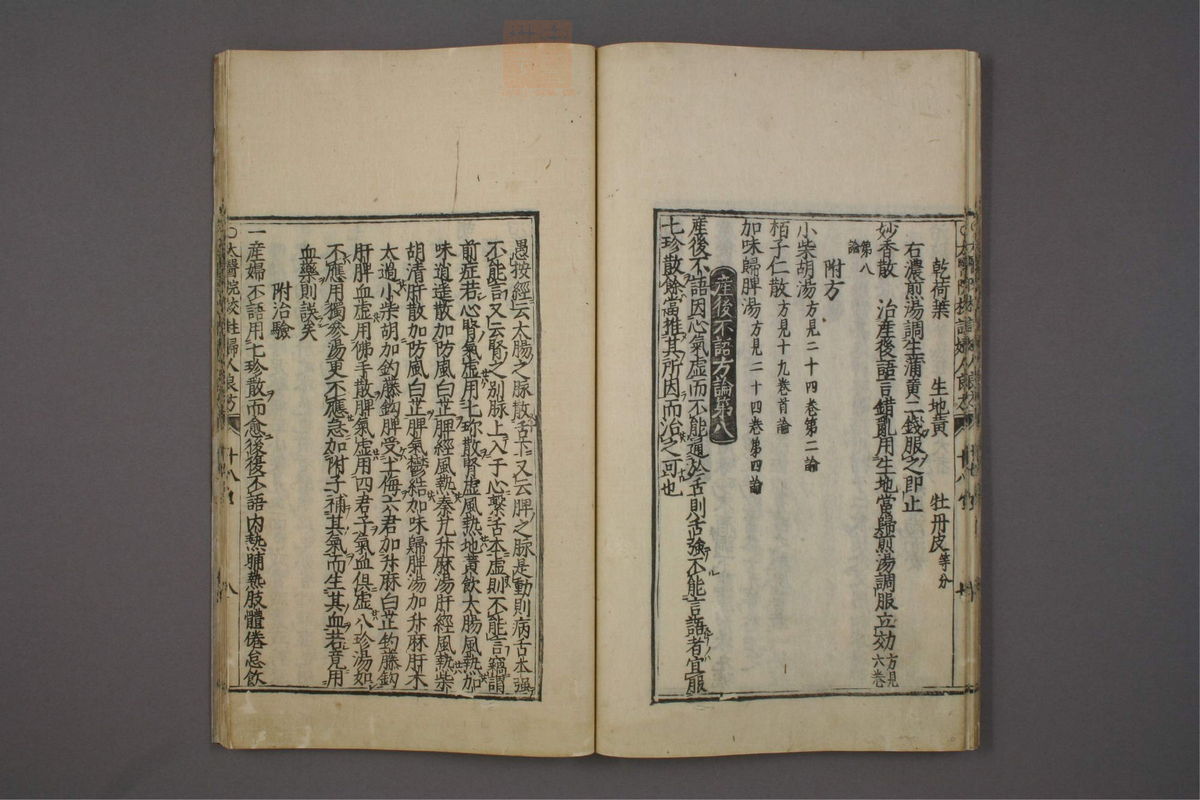 乾荷葉 生地黃 牡丹皮等分
右濃煎湯調生蒲黃二錢服之即止
妙香散 治産後語言錯亂用生地當歸煎湯調服立効方見六卷
第八論
附方
小柴胡湯方見二十四卷第二論
栢子仁散方見十九卷首論
加味歸脾湯方見二十四卷第四論
産後不語方論第八
産後不語因心氣虚而不能通於舌則舌強不能言語者宜服
七珍散餘當推其所因而治之可也
愚按經云大腸之脉散舌下又云脾之脉是動則病舌本強
不能言又云腎之別脉上入于心繫舌本虚則不能言竊謂
前症若心腎氣虚用七珎散腎虚風熱地黃飲大腸風熱加
味逍遥散加防風白芷脾經風熱秦艽升麻湯肝經風熱柴
胡清肝散加防風白芷脾氣鬱結加味歸脾湯加升麻肝木
太過小柴胡加釣藤鈎脾受土侮六君加升麻白芷釣藤鈎
肝脾血虚用佛手散脾氣虚用四君子氣血俱虚八珍湯如
不應用獨參湯更不應急加附子補其氣而生其血若竟用
血藥則誤矣
附治驗
一産婦不語用七珍散而愈後復不語内熱晡熱肢體倦怠飲
〇太醫院校註婦人良方 十八 八